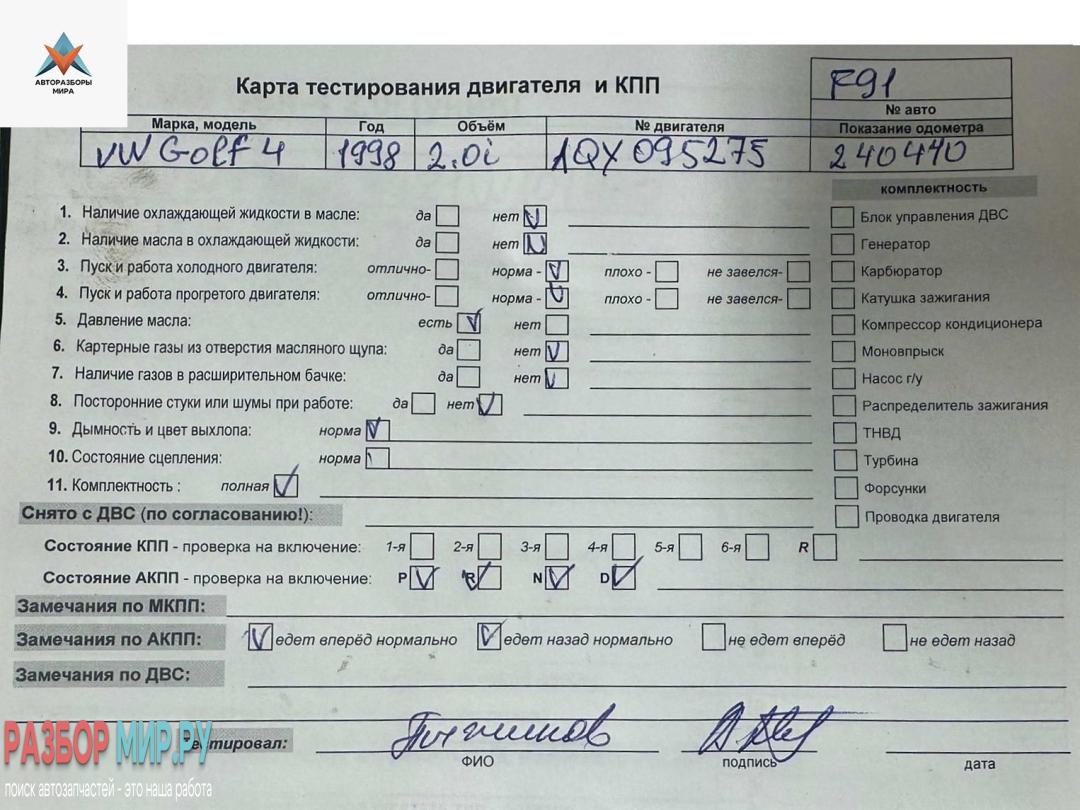 АВТОРАЗБОРЫ
МИРА
Карта тестирования двигателя и КПП
F91
№ авто
Марка, модель Год Объём № двигателя Показание одометра
VW Golf 4 1998 2.0i AQY 095275 240440
комплектность
1. Наличие охлаждающей жидкости в масле: да нет
Блок управления ДВС
2. Наличие масла в охлаждающей жидкости: да нет
Генератор
3. Пуск и работа холодного двигателя: отлично- норма - плохо - не завелся-
Карбюратор
4. Пуск и работа прогретого двигателя: отлично- норма - плохо - не завелся-
Катушка зажигания
5. Давление масла: есть нет
Компрессор кондиционера
6. Картерные газы из отверстия масляного щупа: да нет
Моновпрыск
7. Наличие газов в расширительном бачке: да нет
Насос г/у
8. Посторонние стуки или шумы при работе: да нет
Распределитель зажигания
9. Дымность и цвет выхлопа: норма
ТНВД
10. Состояние сцепления: норма
Турбина
11. Комплектность : полная
Форсунки
Снято с ДВС (по согласованию!):
Проводка двигателя
Состояние КПП - проверка на включение: 1-я 2-я 3-я 4-я 5-я 6-я R
Состояние АКПП - проверка на включение: P R N D
Замечания по МКПП:
Замечания по АКПП: едет вперёд нормально едет назад нормально не едет вперёд не едет назад
Замечания по ДВС:
РАЗБОР МИР.РУ
поиск автозапчастей - это наша работа
тестировал:
ФИО подпись дата